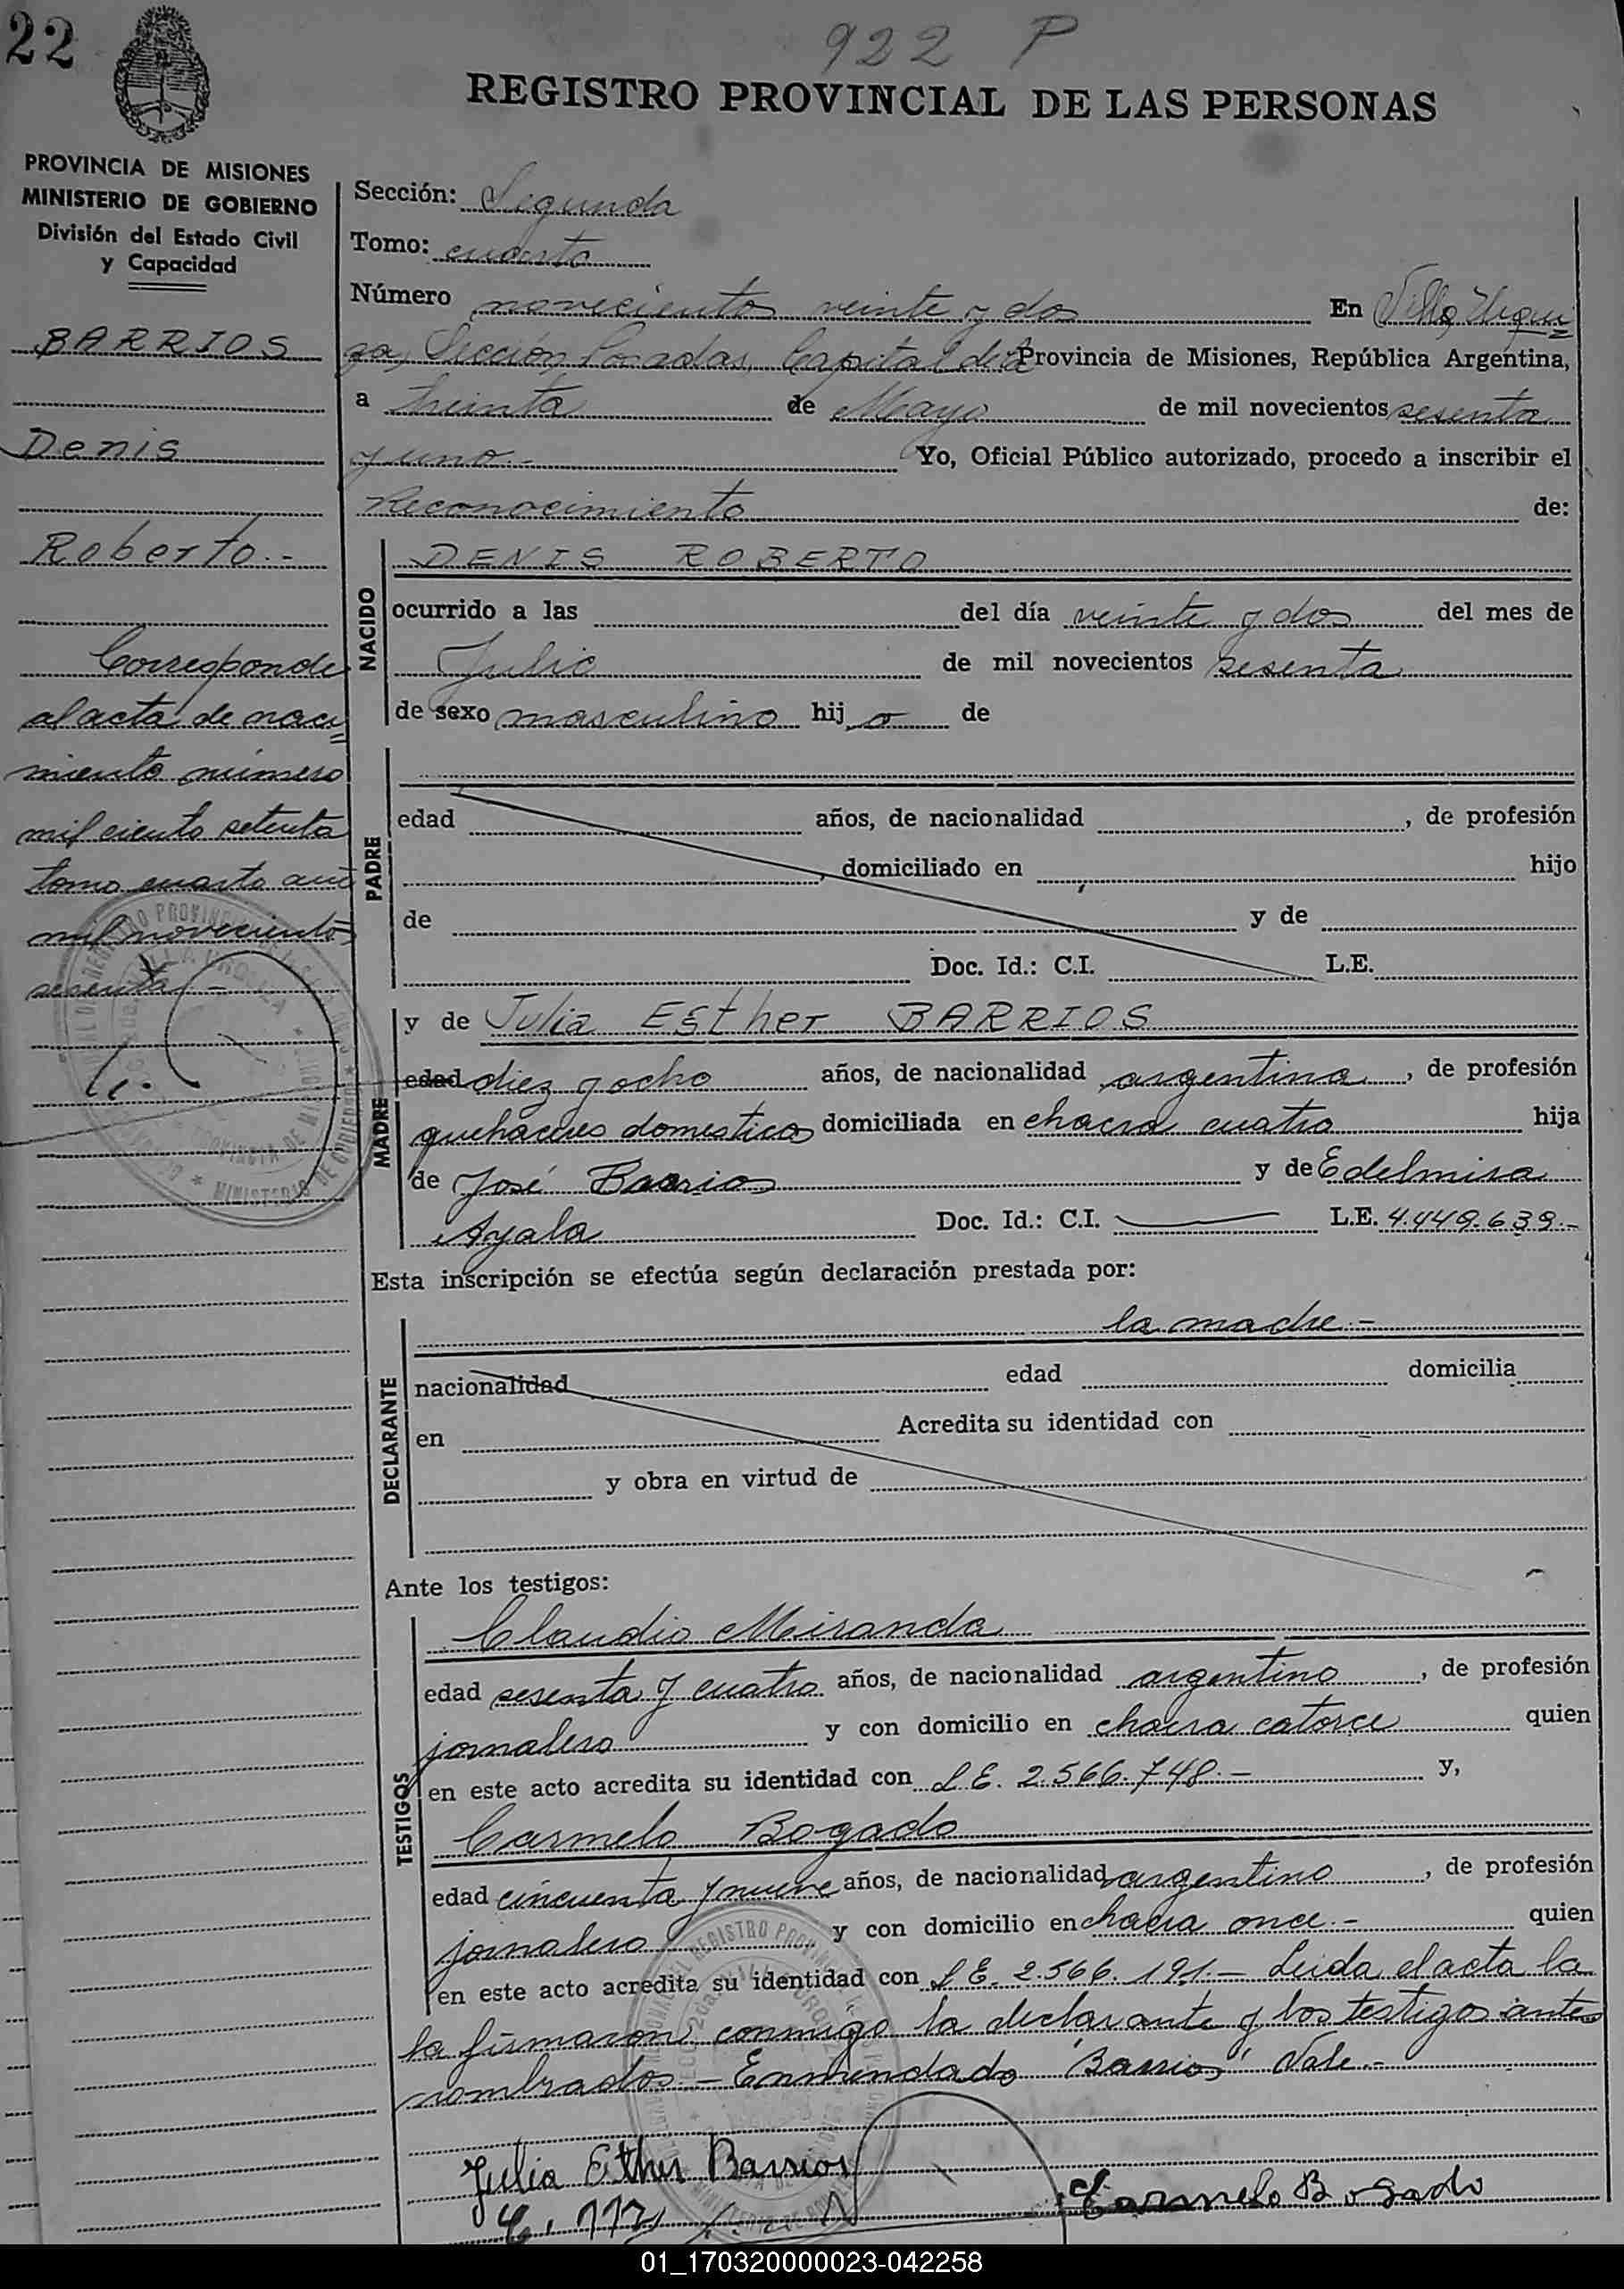 22
922 P
REGISTRO PROVINCIAL DE LAS PERSONAS
PROVINCIA DE MISIONES
MINISTERIO DE GOBIERNO
División del Estado Civil
y Capacidad
BARRIOS
Denis
Roberto.-
Corresponde
al acta de naci
miento número
mil ciento setenta
tomo cuarto año
mil novecientos
sesenta.-
Sección: Segunda
Tomo: cuarto
Número novecientos veinte y dos En Villa Urqui
za, Sección Posadas, Capital de la Provincia de Misiones, República Argentina,
a treinta de Mayo de mil novecientos sesenta
y uno.- Yo, Oficial Público autorizado, procedo a inscribir el
Reconocimiento de:
NACIDO
DENIS ROBERTO
ocurrido a las del día veinte y dos del mes de
Julio de mil novecientos sesenta
de sexo masculino hij o de
PADRE
edad años, de nacionalidad , de profesión
, domiciliado en hijo
de y de
Doc. Id.: C.I. L.E.
MADRE
y de Julia Esther BARRIOS
edad diez y ocho años, de nacionalidad argentina , de profesión
quehaceres domesticos domiciliada en chacra cuatro hija
de José Barrios y de Edelmira
Ayala Doc. Id.: C.I. L.E. 4.449.639.-
Esta inscripción se efectúa según declaración prestada por:
DECLARANTE
la madre.-
nacionalidad edad domicilia
en Acredita su identidad con
y obra en virtud de
Ante los testigos:
TESTIGOS
Claudio Miranda
edad sesenta y cuatro años, de nacionalidad argentino , de profesión
jornalero y con domicilio en chacra catorce quien
en este acto acredita su identidad con L E. 2.566.748.- y,
Carmelo Bogado
edad cincuenta y nueve años, de nacionalidad argentino , de profesión
jornalero y con domicilio en chacra once.- quien
en este acto acredita su identidad con L E. 2.566.191.- Leida el acta la
la firmaron conmigo la declarante y los testigos antes
nombrados.- Enmendado "Barrios" Vale.-
Julia Esther Barrios
Carmelo Bogado
01_170320000023-042258